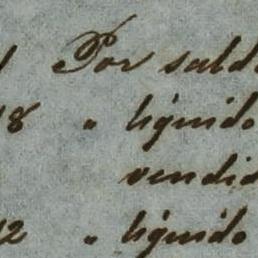 Por sald
18 " liquido
vendid
12 " liquido